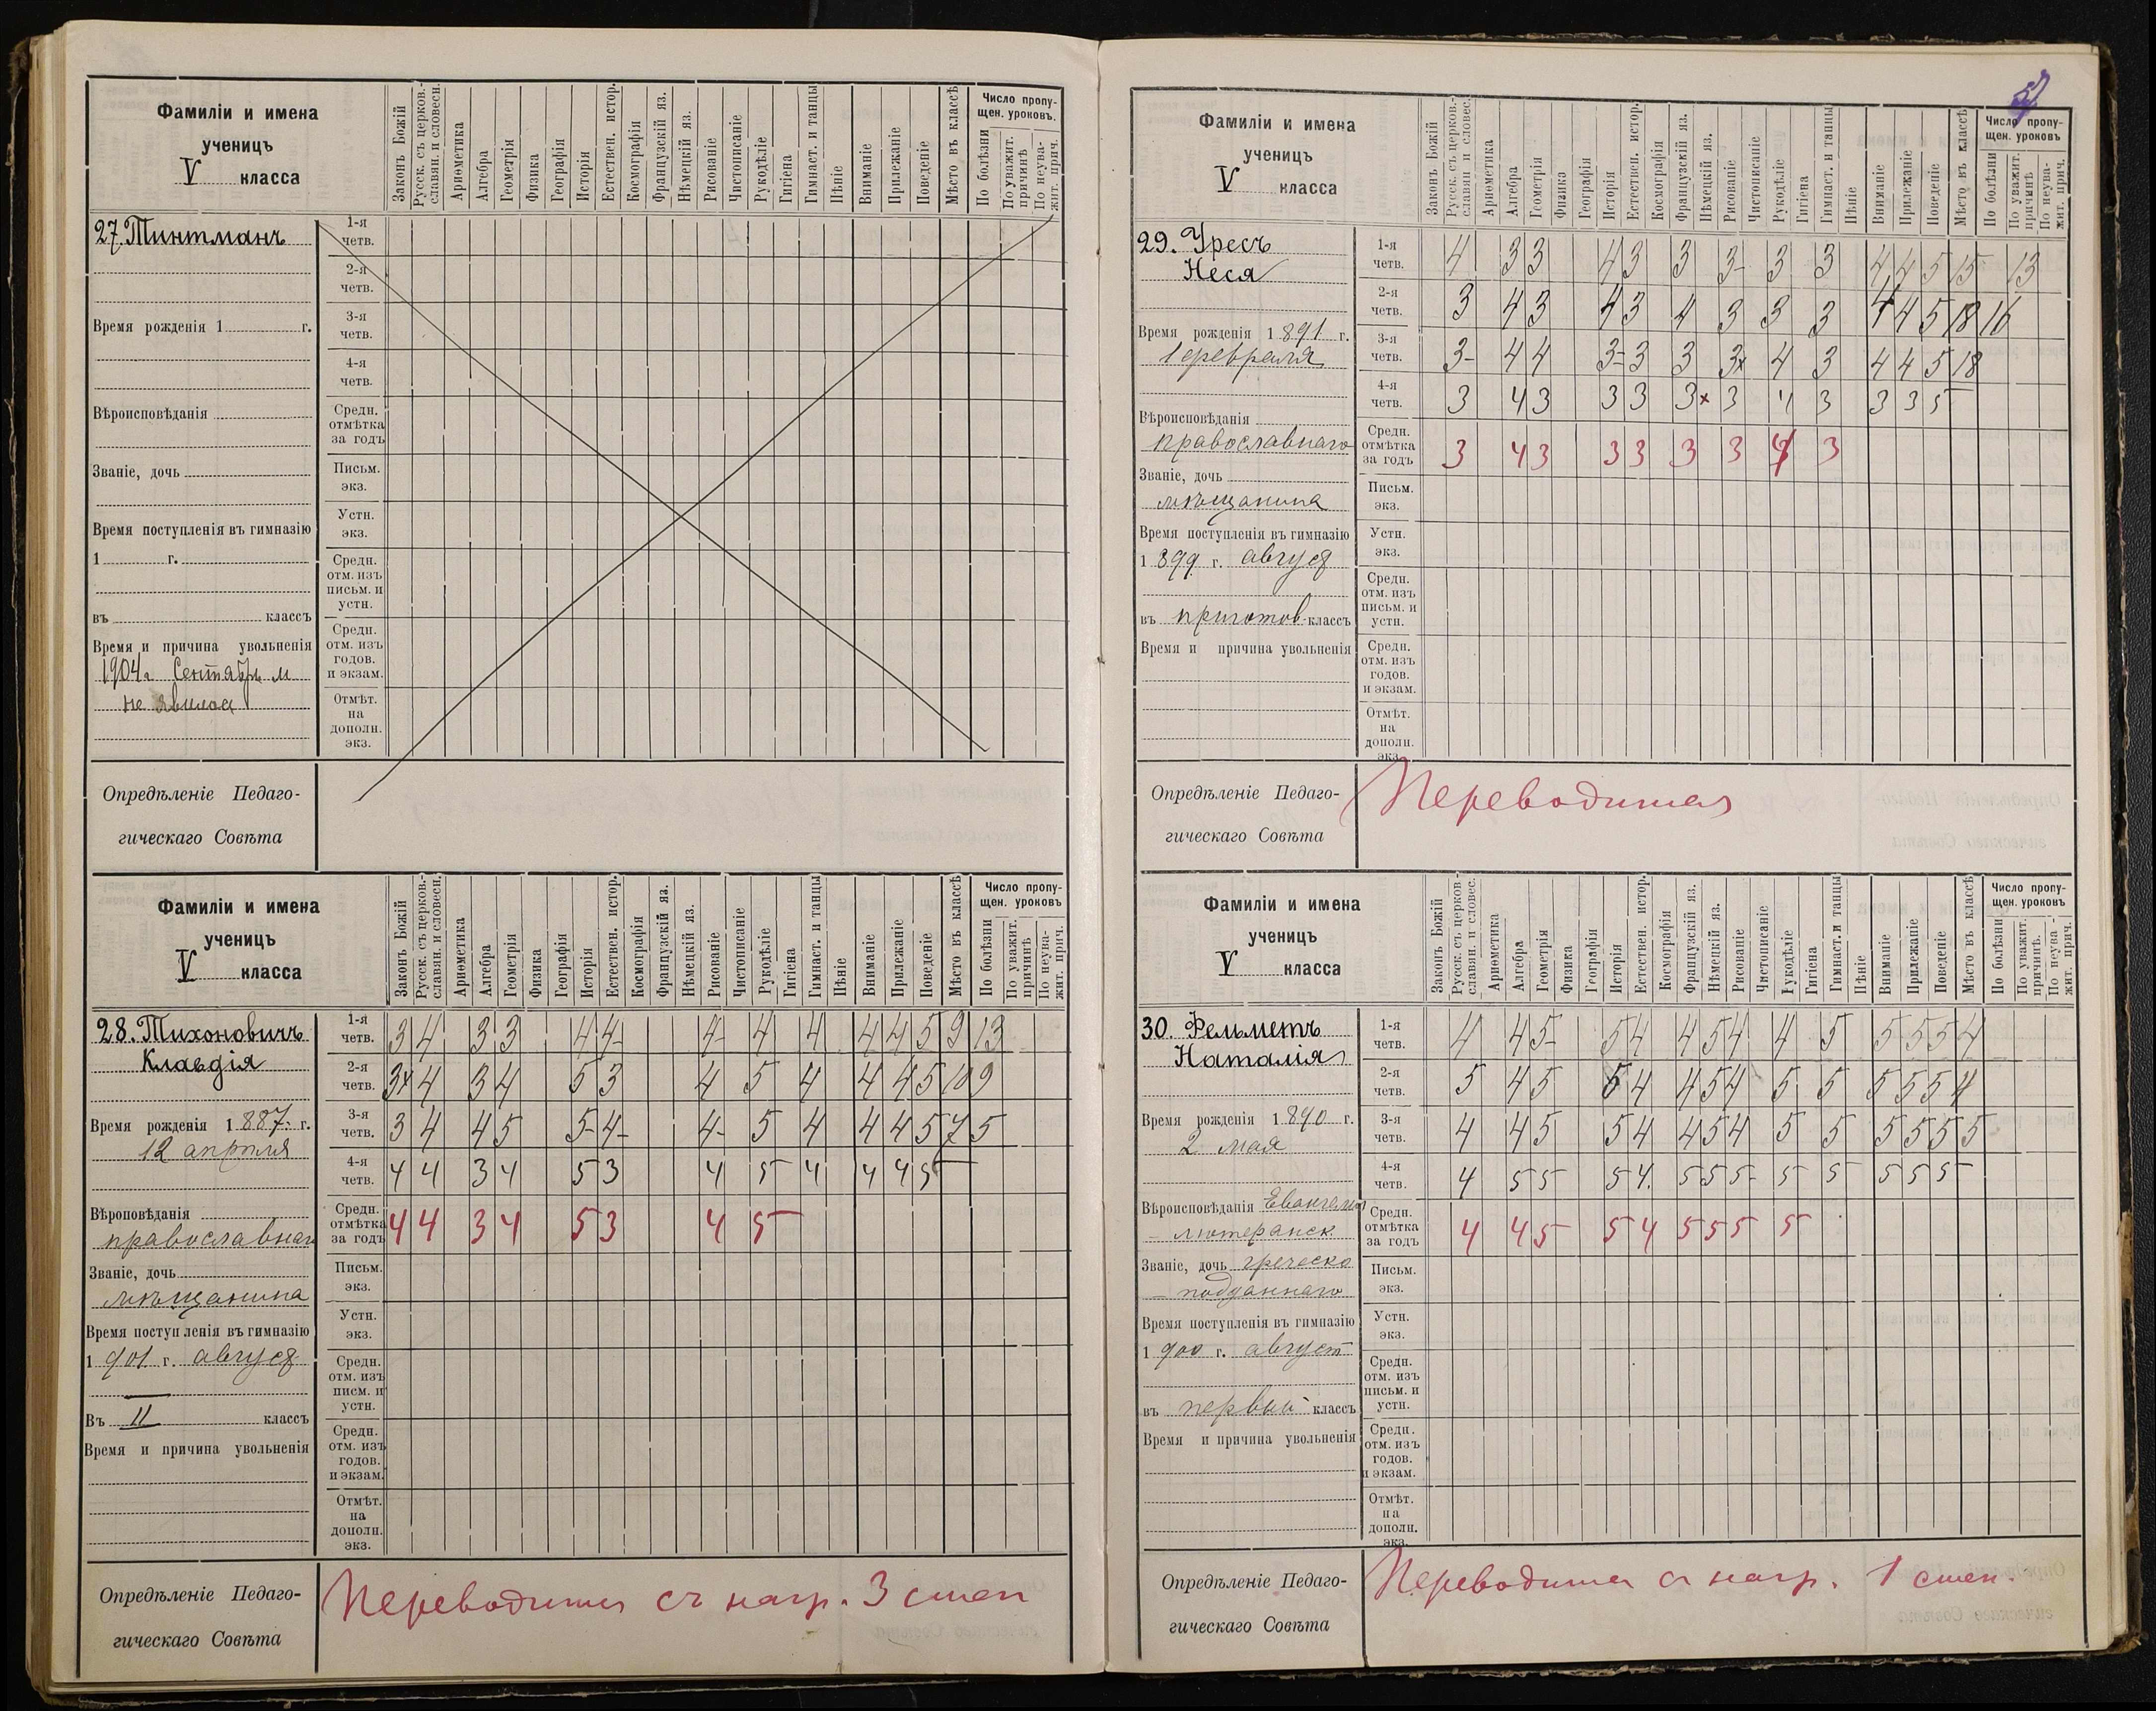 Фамиліи и имена
ученицъ
V класса
Законъ Божій
Русск. съ церков.-
славян. и словесн.
Ариѳметика
Алгебра
Геометрія
Физика
Географія
Исторія
Естествен. истор.
Космографія
Французскій яз.
Нѣмецкій яз.
Рисованіе
Чистописаніе
Рукодѣліе
Гигіена
Гимнаст. и танцы
Пѣніе
Вниманіе
Прилежаніе
Поведеніе
Мѣсто въ классѣ
Число пропу-
щен. уроковъ.
По болѣзни
По уважит.
причинѣ
По неува-
жит. прич.
27. Тинтманъ
Время рожденія 1 г.
Вѣроисповѣданія
Званіе, дочь
Время поступленія въ гимназію
1 г.
въ классъ
Время и причина увольненія
1904 г. Сентябрь м
не явилась
1-я
четв.
2-я
четв.
3-я
четв.
4-я
четв.
Средн.
отмѣтка
за годъ
Письм.
экз.
Устн.
экз.
Средн.
отм. изъ
письм. и
устн.
Средн.
отм. изъ
годов.
и экзам.
Отмѣт.
на
дополн.
экз.
Опредѣленіе Педаго-
гическаго Совѣта
Фамиліи и имена
ученицъ
V класса
Законъ Божій
Русск. съ церков.-
славян. и словесн.
Ариѳметика
Алгебра
Геометрія
Физика
Географія
Исторія
Естествен. истор.
Космографія
Французскій яз.
Нѣмецкій яз.
Рисованіе
Чистописаніе
Рукодѣліе
Гигіена
Гимнаст. и танцы
Пѣніе
Вниманіе
Прилежаніе
Поведеніе
Мѣсто въ классѣ
Число пропу-
щен. уроковъ
По болѣзни
По уважит.
причинѣ
По неува-
жит. прич.
28. Тихоновичъ
Клавдія
Время рожденія 1887. г.
12 апрѣля
Вѣроповѣданія
православнаго
Званіе, дочь
мѣщанина
Время поступленія въ гимназію
1901 г. август
Въ II классъ
Время и причина увольненія
1-я
четв. 3 4 3 3 4 4- 4- 4 4 4 4 5 9 13
2-я
четв. 3x 4 3 4 5 3 4 5 4 4 4 5 10 9
3-я
четв. 3 4 4 5 5- 4- 4- 5 4 4 4 5 7 5
4-я
четв. 4 4 3 4 5 3 4 5 4 4 4 5
Средн.
отмѣтка
за годъ 4 4 3 4 5 3 4 5
Письм.
экз.
Устн.
экз.
Средн.
отм. изъ
писм. и
устн.
Средн.
отм. изъ
годов.
и экзам.
Отмѣт.
на
дополн.
экз.
Опредѣленіе Педаго-
гическаго Совѣта
Переводится съ нагр. 3 степ
Фамиліи и имена
ученицъ
V класса
Законъ Божій
Русск. съ церков.-
славян и словес.
Ариѳметика
Алгебра
Геометрія
Физика
Географія
Исторія
Естествен. истор.
Космографія
Французскій яз.
Нѣмецкій яз.
Рисованіе
Чистописаніе
Рукодѣліе
Гигіена
Гимнаст. и танцы
Пѣніе
Вниманіе
Прилежаніе
Поведеніе
Мѣсто въ классѣ
Число пропу-
щен. уроковъ
По болѣзни
По уважит.
причинѣ
По неува-
жит. прич.
29. Уресъ
Неся
Время рожденія 1891 г.
1 февраля
Вѣроисповѣданія
православнаго
Званіе, дочь
мѣщанина
Время поступленія въ гимназію
1899 г. август
въ приготов. классъ
Время и причина увольненія
1-я
четв. 4 3 3 4 3 3 3- 3 3 4 4 5 15 13
2-я
четв. 3 4 3 4 3 4 3 3 3 4 4 5 18 16
3-я
четв. 3- 4 4 3- 3 3 3x 4 3 4 4 5 18
4-я
четв. 3 4 3 3 3 3x 3 4 3 3 3 5
Средн.
отмѣтка
за годъ 3 4 3 3 3 3 3 4 3
Письм.
экз.
Устн.
экз.
Средн.
отм. изъ
письм. и
устн.
Средн.
отм. изъ
годов.
и экзам.
Отмѣт.
на
дополн.
экз.
Опредѣленіе Педаго-
гическаго Совѣта
Переводится
Фамиліи и имена
ученицъ
V класса
Законъ Божій
Русск. съ церков-
славян. и словес.
Ариѳметика
Алгебра
Геометрія
Физика
Географія
Исторія
Естествен. истор.
Космографія
Французскій яз.
Нѣмецкій яз.
Рисованіе
Чистописаніе
Рукодѣліе
Гигіена
Гимнаст. и танцы
Пѣніе
Вниманіе
Прилежаніе
Поведеніе
Мѣсто въ классѣ
Число пропу-
щен. уроковъ
По болѣзни
По уважит.
причинѣ.
По неува-
жит. прич.
30. Фельметъ
Наталія
Время рожденія 1890 г.
2 мая
Вѣроисповѣданія Евангел.
- лютеранск.
Званіе, дочь греческо
- подданнаго
Время поступленія въ гимназію
1900 г. август
въ первый классъ
Время и причина увольненія
1-я
четв. 4 4 5- 5 4 4 5 4 4 5 5 5 5 4
2-я
четв. 5 4 5 5 4 4 5 4 5 5 5 5 5 4
3-я
четв. 4 4 5 5 4 4 5 4 5 5 5 5 5 5
4-я
четв. 4 5 5 5 4. 5 5 5- 5 5 5 5 5
Средн.
отмѣтка
за годъ 4 4 5 5 4 5 5 5 5
Письм.
экз.
Устн.
экз.
Средн.
отм. изъ
письм. и
устн.
Средн.
отм. изъ
годов.
и экзам.
Отмѣт.
на
дополн.
экз.
Опредѣленіе Педаго-
гическаго Совѣта
Переводится съ нагр. 1 степ.